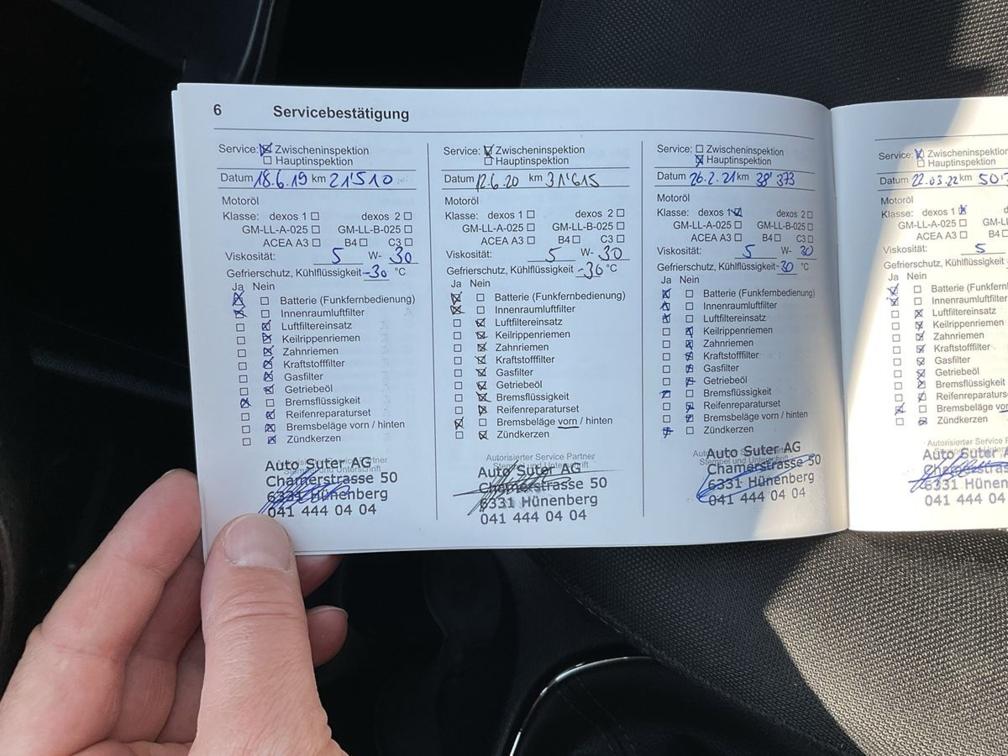 6 Servicebestätigung
Service: Zwischeninspektion
Hauptinspektion
Datum 18.6.19 km 21'510
Motoröl
Klasse: dexos 1 dexos 2
GM-LL-A-025 GM-LL-B-025
ACEA A3 B4 C3
Viskosität: 5 W- 30
Gefrierschutz, Kühlflüssigkeit -30 °C
Ja Nein
Batterie (Funkfernbedienung)
Innenraumluftfilter
Luftfiltereinsatz
Keilrippenriemen
Zahnriemen
Kraftstofffilter
Gasfilter
Getriebeöl
Bremsflüssigkeit
Reifenreparaturset
Bremsbeläge vorn / hinten
Zündkerzen
Auto Suter AG
Chamerstrasse 50
6331 Hünenberg
041 444 04 04
Service: Zwischeninspektion
Hauptinspektion
Datum 12.6.20 km 31'615
Motoröl
Klasse: dexos 1 dexos 2
GM-LL-A-025 GM-LL-B-025
ACEA A3 B4 C3
Viskosität: 5 W- 30
Gefrierschutz, Kühlflüssigkeit -30 °C
Ja Nein
Batterie (Funkfernbedienung)
Innenraumluftfilter
Luftfiltereinsatz
Keilrippenriemen
Zahnriemen
Kraftstofffilter
Gasfilter
Getriebeöl
Bremsflüssigkeit
Reifenreparaturset
Bremsbeläge vorn / hinten
Zündkerzen
Autorisierter Service Partner
Stempel und Unterschrift
Auto Suter AG
Chamerstrasse 50
6331 Hünenberg
041 444 04 04
Service: Zwischeninspektion
Hauptinspektion
Datum 26.2.21 km 38'373
Motoröl
Klasse: dexos 1 dexos 2
GM-LL-A-025 GM-LL-B-025
ACEA A3 B4 C3
Viskosität: 5 W- 30
Gefrierschutz, Kühlflüssigkeit -30 °C
Ja Nein
Batterie (Funkfernbedienung)
Innenraumluftfilter
Luftfiltereinsatz
Keilrippenriemen
Zahnriemen
Kraftstofffilter
Gasfilter
Getriebeöl
Bremsflüssigkeit
Reifenreparaturset
Bremsbeläge vorn / hinten
Zündkerzen
Auto Suter AG
Chamerstrasse 50
6331 Hünenberg
041 444 04 04
Service: Zwischeninspektion
Hauptinspektion
Datum 22.03.22 km
Motoröl
Klasse: dexos 1
GM-LL-A-025 GM-LL
ACEA A3 B4
Viskosität: 5
Gefrierschutz, Kühlflüssigkeit
Ja Nein
Batterie (Funkfern
Innenraumluftfilter
Luftfiltereinsatz
Keilrippenriemen
Zahnriemen
Kraftstofffilter
Gasfilter
Getriebeöl
Bremsflüssigkeit
Reifenreparaturs
Bremsbeläge vor
Zündkerzen
Autorisierter Service
Auto Suter A
Chamerstrasse
6331 Hünen
041 444 04